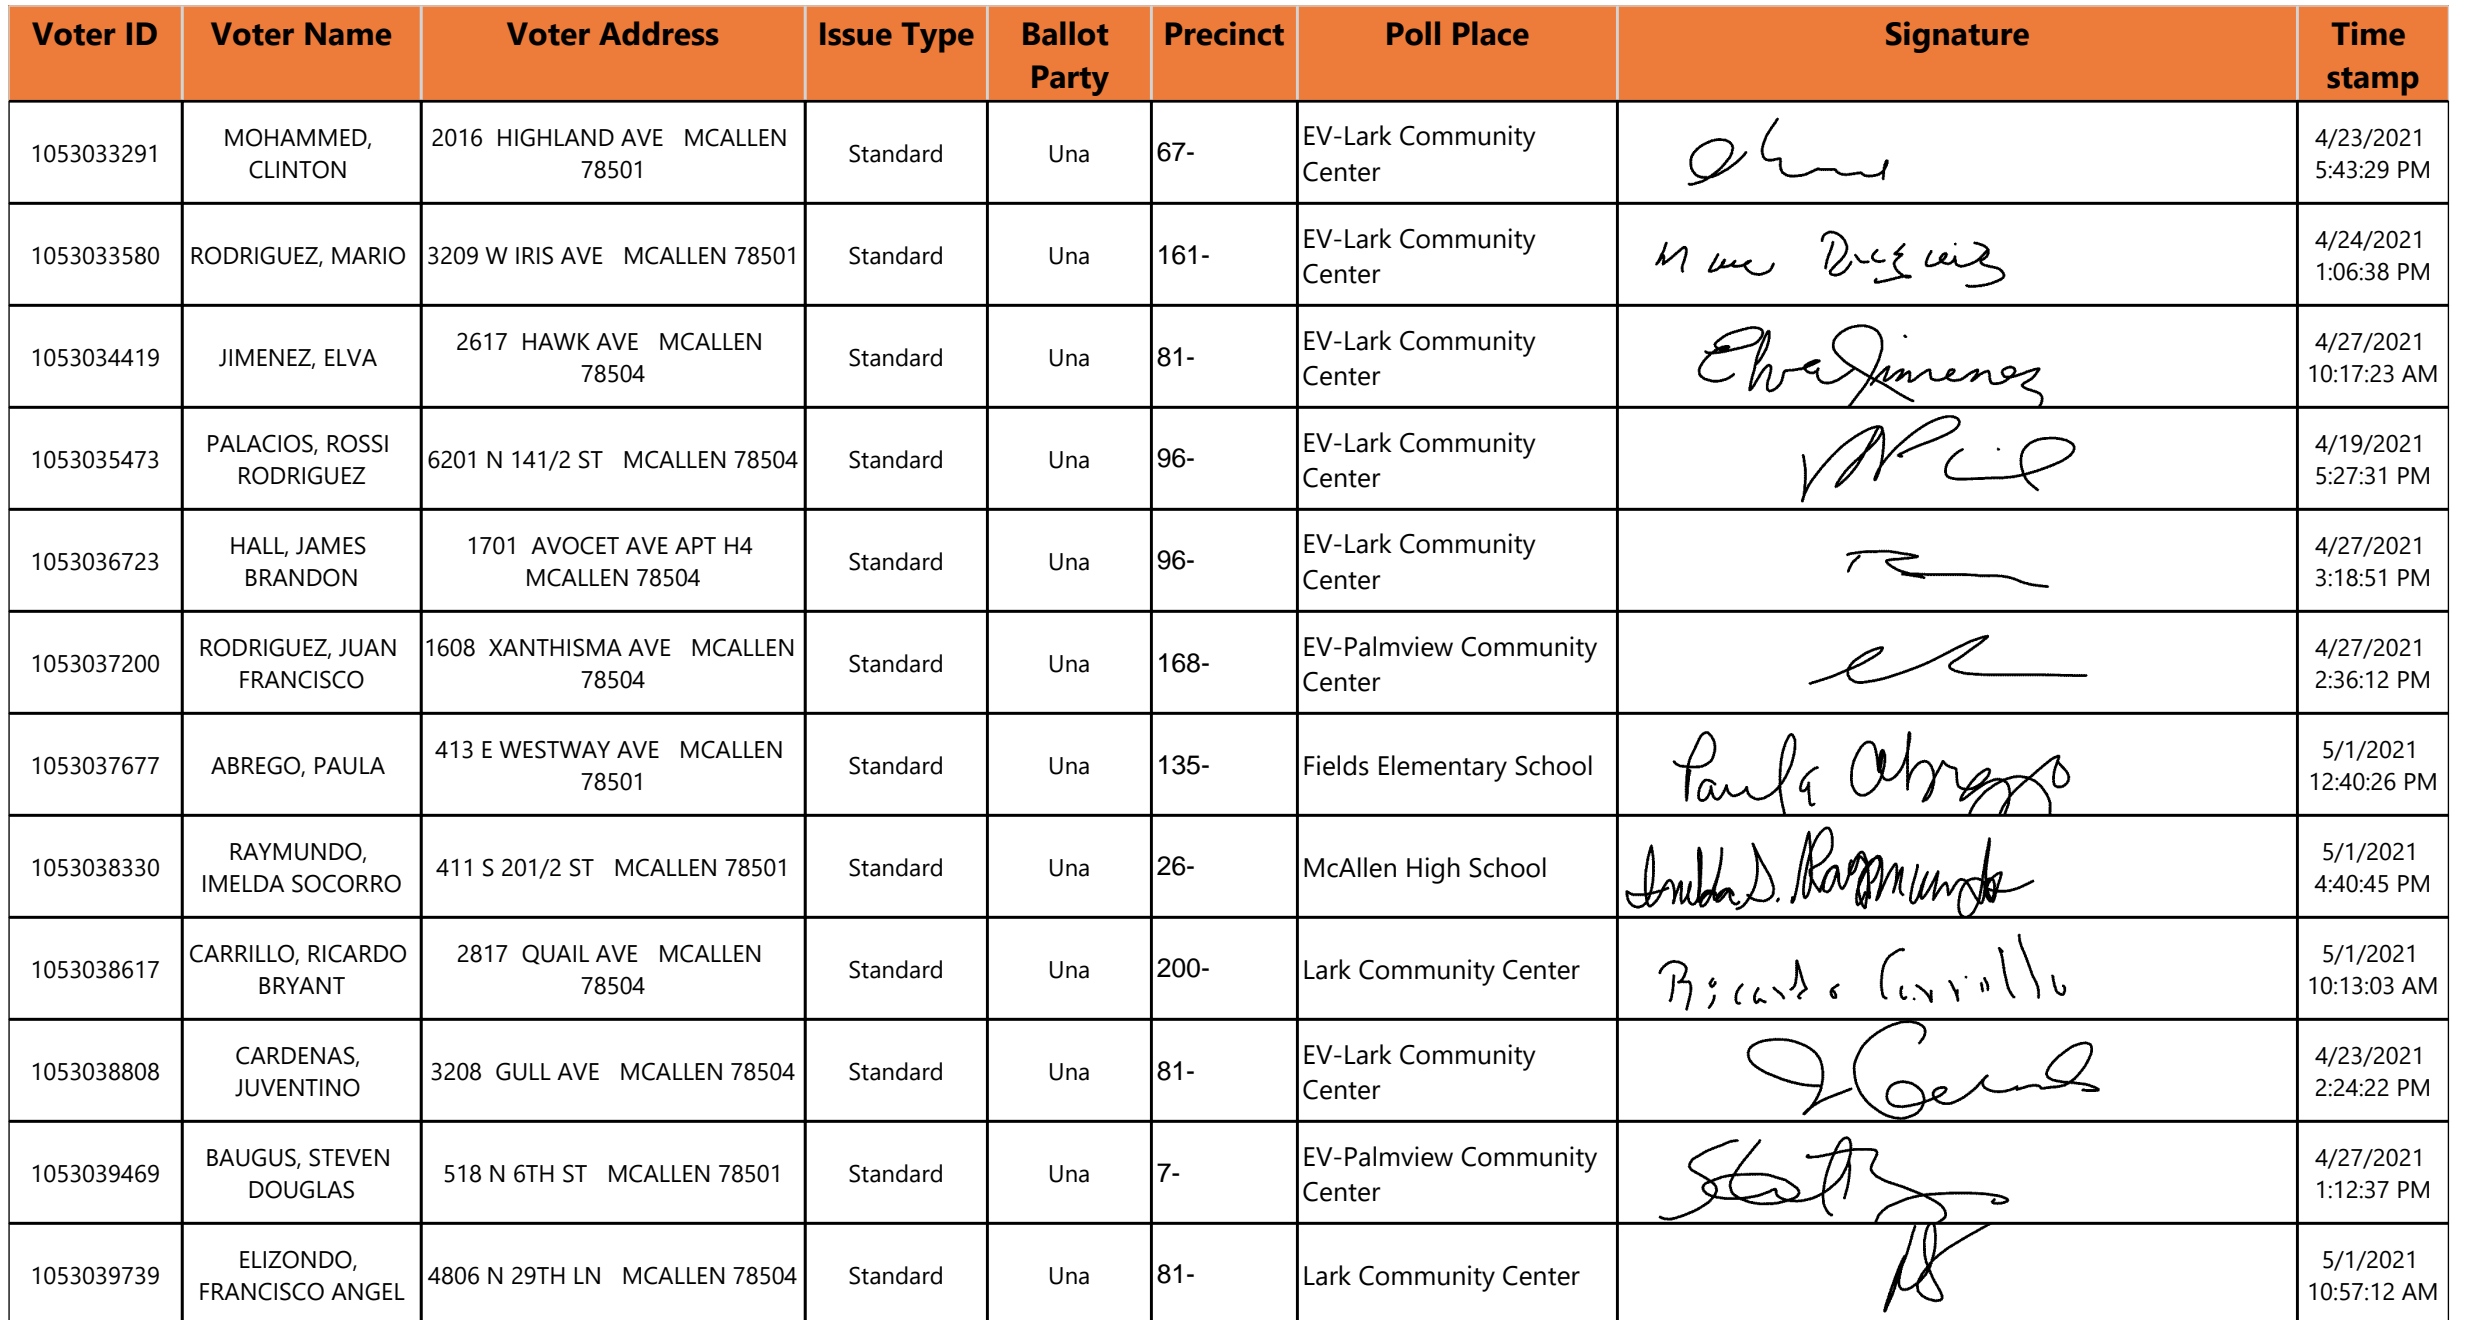 Voter ID Voter Name Voter Address Issue Type Ballot Party Precinct Poll Place Signature Time stamp
1053033291 MOHAMMED, CLINTON 2016 HIGHLAND AVE MCALLEN 78501 Standard Una 67- EV-Lark Community Center 4/23/2021 5:43:29 PM
1053033580 RODRIGUEZ, MARIO 3209 W IRIS AVE MCALLEN 78501 Standard Una 161- EV-Lark Community Center 4/24/2021 1:06:38 PM
1053034419 JIMENEZ, ELVA 2617 HAWK AVE MCALLEN 78504 Standard Una 81- EV-Lark Community Center Elva Jimenez 4/27/2021 10:17:23 AM
1053035473 PALACIOS, ROSSI RODRIGUEZ 6201 N 141/2 ST MCALLEN 78504 Standard Una 96- EV-Lark Community Center 4/19/2021 5:27:31 PM
1053036723 HALL, JAMES BRANDON 1701 AVOCET AVE APT H4 MCALLEN 78504 Standard Una 96- EV-Lark Community Center 4/27/2021 3:18:51 PM
1053037200 RODRIGUEZ, JUAN FRANCISCO 1608 XANTHISMA AVE MCALLEN 78504 Standard Una 168- EV-Palmview Community Center 4/27/2021 2:36:12 PM
1053037677 ABREGO, PAULA 413 E WESTWAY AVE MCALLEN 78501 Standard Una 135- Fields Elementary School Paula Abrego 5/1/2021 12:40:26 PM
1053038330 RAYMUNDO, IMELDA SOCORRO 411 S 201/2 ST MCALLEN 78501 Standard Una 26- McAllen High School Imelda S. Raymundo 5/1/2021 4:40:45 PM
1053038617 CARRILLO, RICARDO BRYANT 2817 QUAIL AVE MCALLEN 78504 Standard Una 200- Lark Community Center Ricardo Carrillo 5/1/2021 10:13:03 AM
1053038808 CARDENAS, JUVENTINO 3208 GULL AVE MCALLEN 78504 Standard Una 81- EV-Lark Community Center 4/23/2021 2:24:22 PM
1053039469 BAUGUS, STEVEN DOUGLAS 518 N 6TH ST MCALLEN 78501 Standard Una 7- EV-Palmview Community Center 4/27/2021 1:12:37 PM
1053039739 ELIZONDO, FRANCISCO ANGEL 4806 N 29TH LN MCALLEN 78504 Standard Una 81- Lark Community Center 5/1/2021 10:57:12 AM